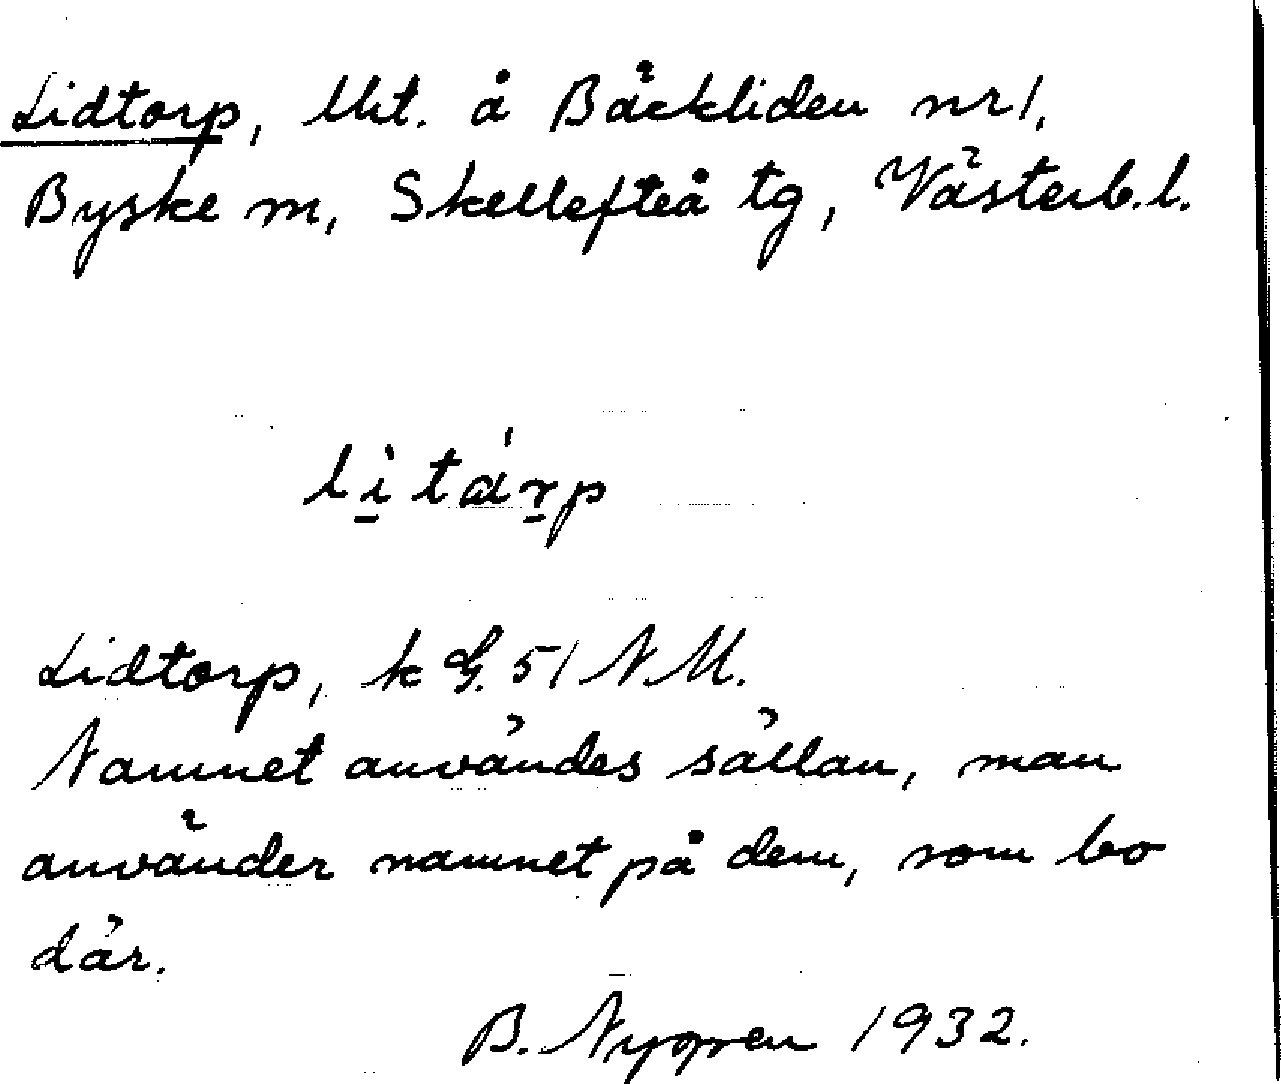 Lidtorp, lht. å Bäckliden nr 1,
Byske sn, Skellefteå tg, Västerb. l.
lìtárp
Lidtorp, k G. 51 N M.
Namnet användes sällan, man
använder namnet på dem, som bo
där.
B. Nygren 1932.